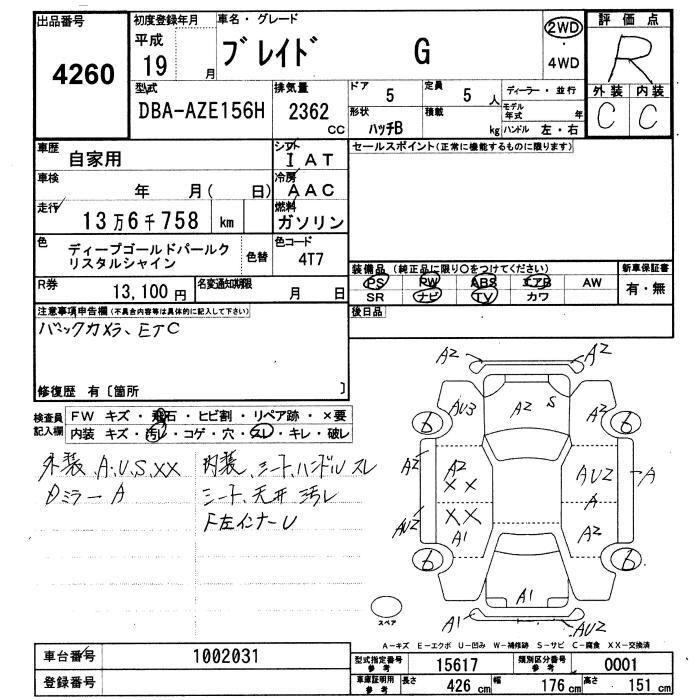 出品番号
4260
初度登録年月
平成
19 月
車名・グレード
ブレイド G
2WD
・
4WD
評価点
R
外装 内装
C C
型式
DBA-AZE156H
排気量
2362
CC
ドア
5
定員
5 人
形状
ハッチB
積載
kg
ディーラー・並行
モデル年式 年
ハンドル 左・右
車歴
自家用
シフト
I AT
車検
年 月( 日)
冷房
A AC
走行
13万6千758 km
燃料
ガソリン
色
ディープゴールドパールク
リスタルシャイン
色替
色コード
4T7
R券
13,100 円
名変通知期限
月 日
セールスポイント(正常に機能するものに限ります)
装備品(純正品に限り○をつけてください)
PS PW ABS エアB AW
SR ナビ TV カワ
新車保証書
有・無
後日品
注意事項申告欄(不具合内容等は具体的に記入して下さい)
バックカメラ、ETC
修復歴 有〔箇所 〕
検査員
記入欄
FW キズ・飛石・ヒビ割・リペア跡・×要
内装 キズ・汚レ・コゲ・穴・スレ・キレ・破レ
外装、A、U、S、XX
Dミラー A
内装、シート、ハンドル スレ
シート、天井 汚レ
F左インナー U
A2 A2
AU3 A2 S A2
6 6
A2 A2 AU2 A
XX A
AU2 XX A2
A1
6 6
A1
A1 AU2
スペア
A-キズ E-エクボ U-凹み W-補修跡 S-サビ C-腐食 XX-交換済
車台番号
1002031
登録番号
型式指定番号
参考
15617
類別区分番号
参考
0001
車庫証明用
参考
長さ
426 cm
幅
176 cm
高さ
151 cm